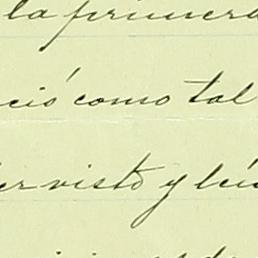 la primera
ció como tal
er visto y leí